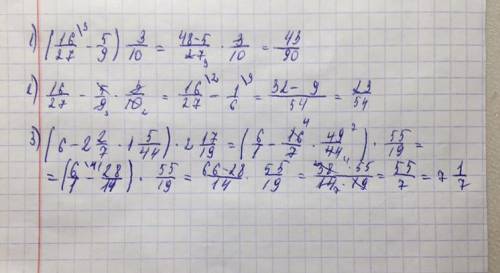 1) (16/27 \3 - 5/9) 3/10 = 48-5/27 9 · 3/10 = 43/90
2) 16/27 - 5/9 3 · 3/10 2 = 16/27 \2 - 1/6 \9 = 32-9/54 = 23/54
3) (6 - 2 2/7 · 1 5/44) · 2 17/19 = (6/1 - 16/7 4 · 49/44 2) · 55/19 =
= (6/1 \11 - 28/11) · 55/19 = 66-28/11 · 55/19 = 38 · 55/19 = 55/7 = 7 1/7